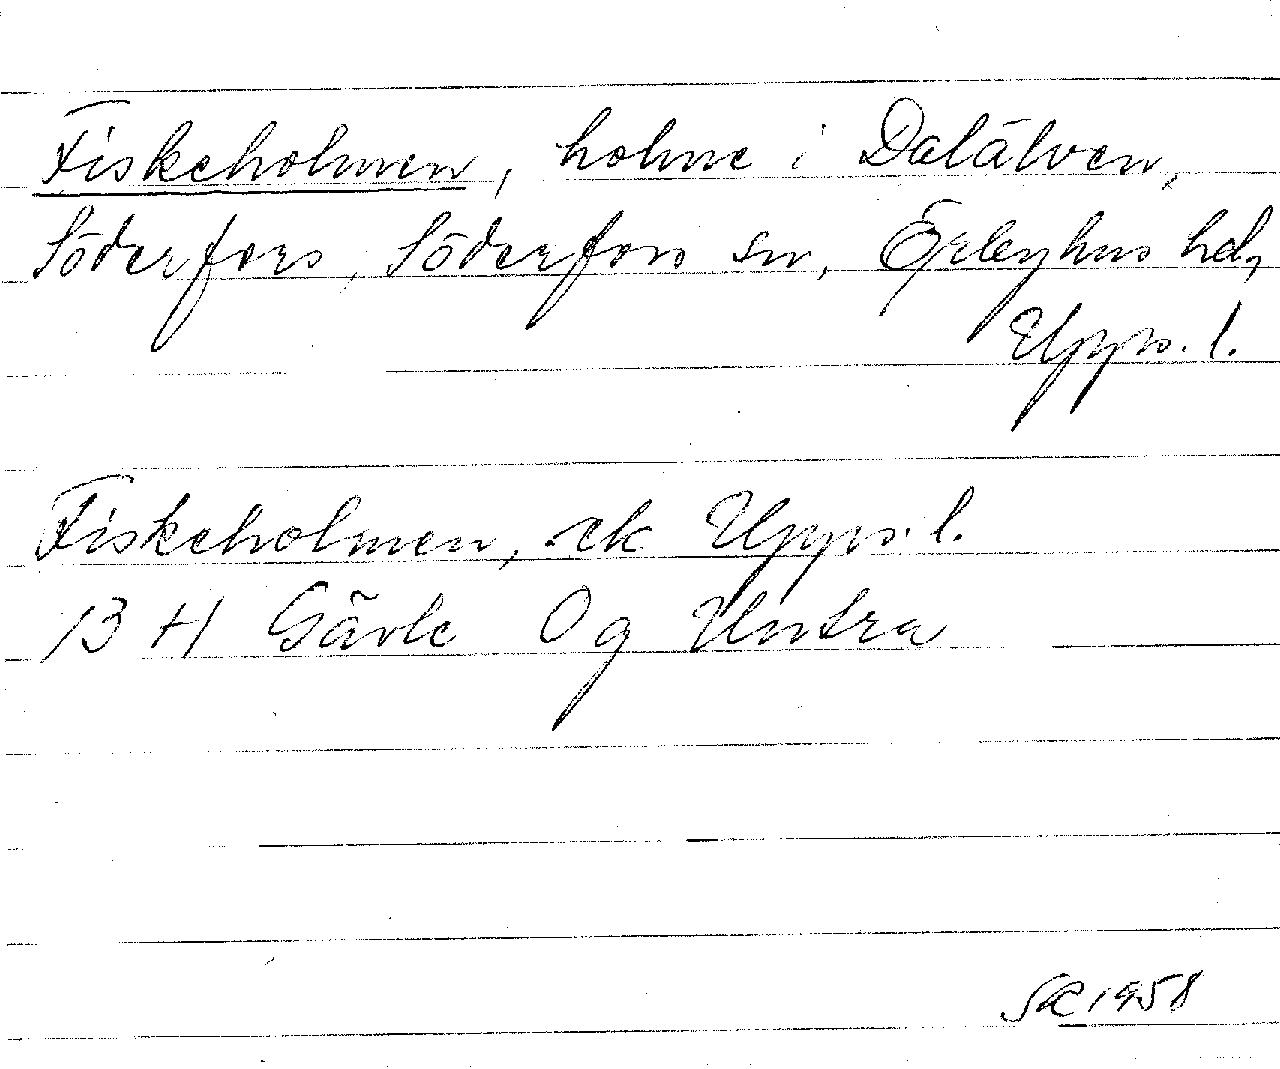 Fiskeholmen, holme i Dalälven,
Söderfors, Söderfors sn, Örbyhus hd,
Upps. l.
Fiskeholmen, ek Upps. l.
13 H Gävle 0 g Untra
1958